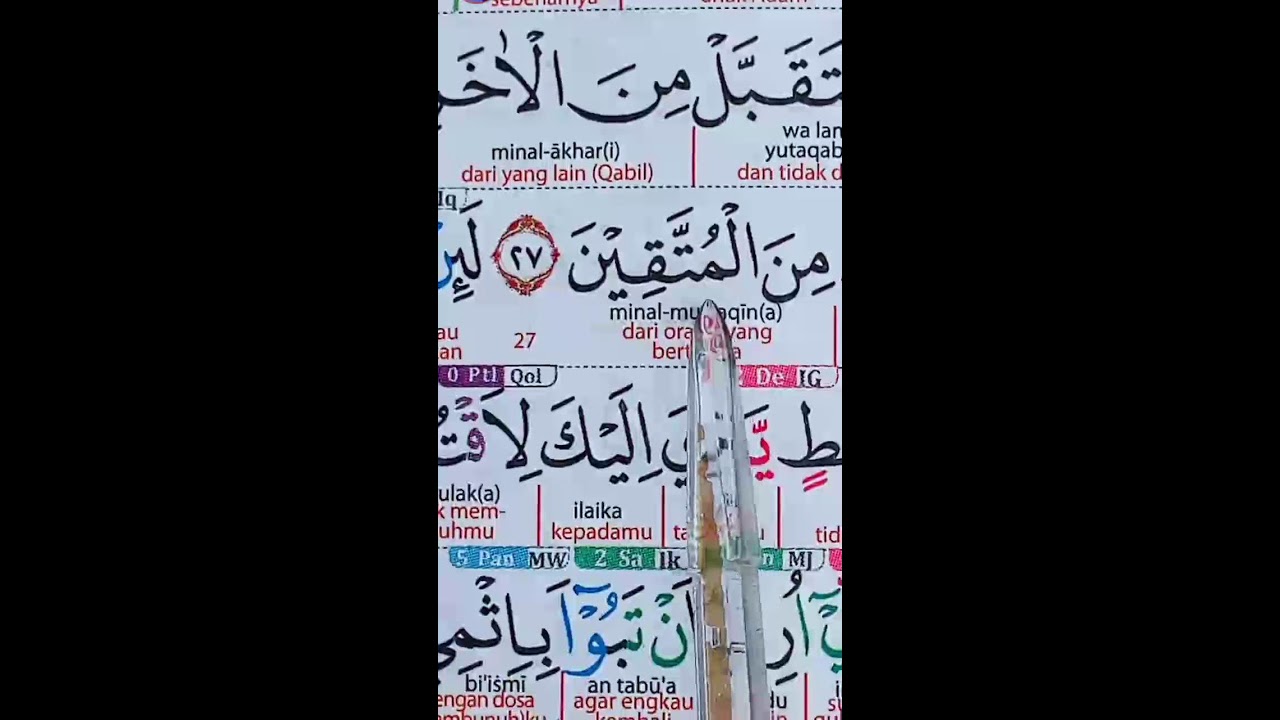 sebenarnya anak Adam
تَقَبَّلْ مِنَ الْاٰخَرِ
minal-ākhar(i) wa lam yutaqab
dari yang lain (Qabil) dan tidak d
Iq
مِنَ الْمُتَّقِيْنَ ٢٧ لَىِٕنْ
minal-mu aqīn(a)
dari ora yang
bert a
27
au
an
0 Ptl Qol De IG
طٍ يَّ يَ اِلَيْكَ لِاَقْتُ
ulak(a) ilaika
k mem- kepadamu ta u tid
uhmu
5 Pan MW 2 Sa Ik n MJ
اُرِ اَنْ تَبُوْۤاَ بِاِثْمِيْ
bi'iṡmī an tabū'a du
engan dosa agar engkau
kembali